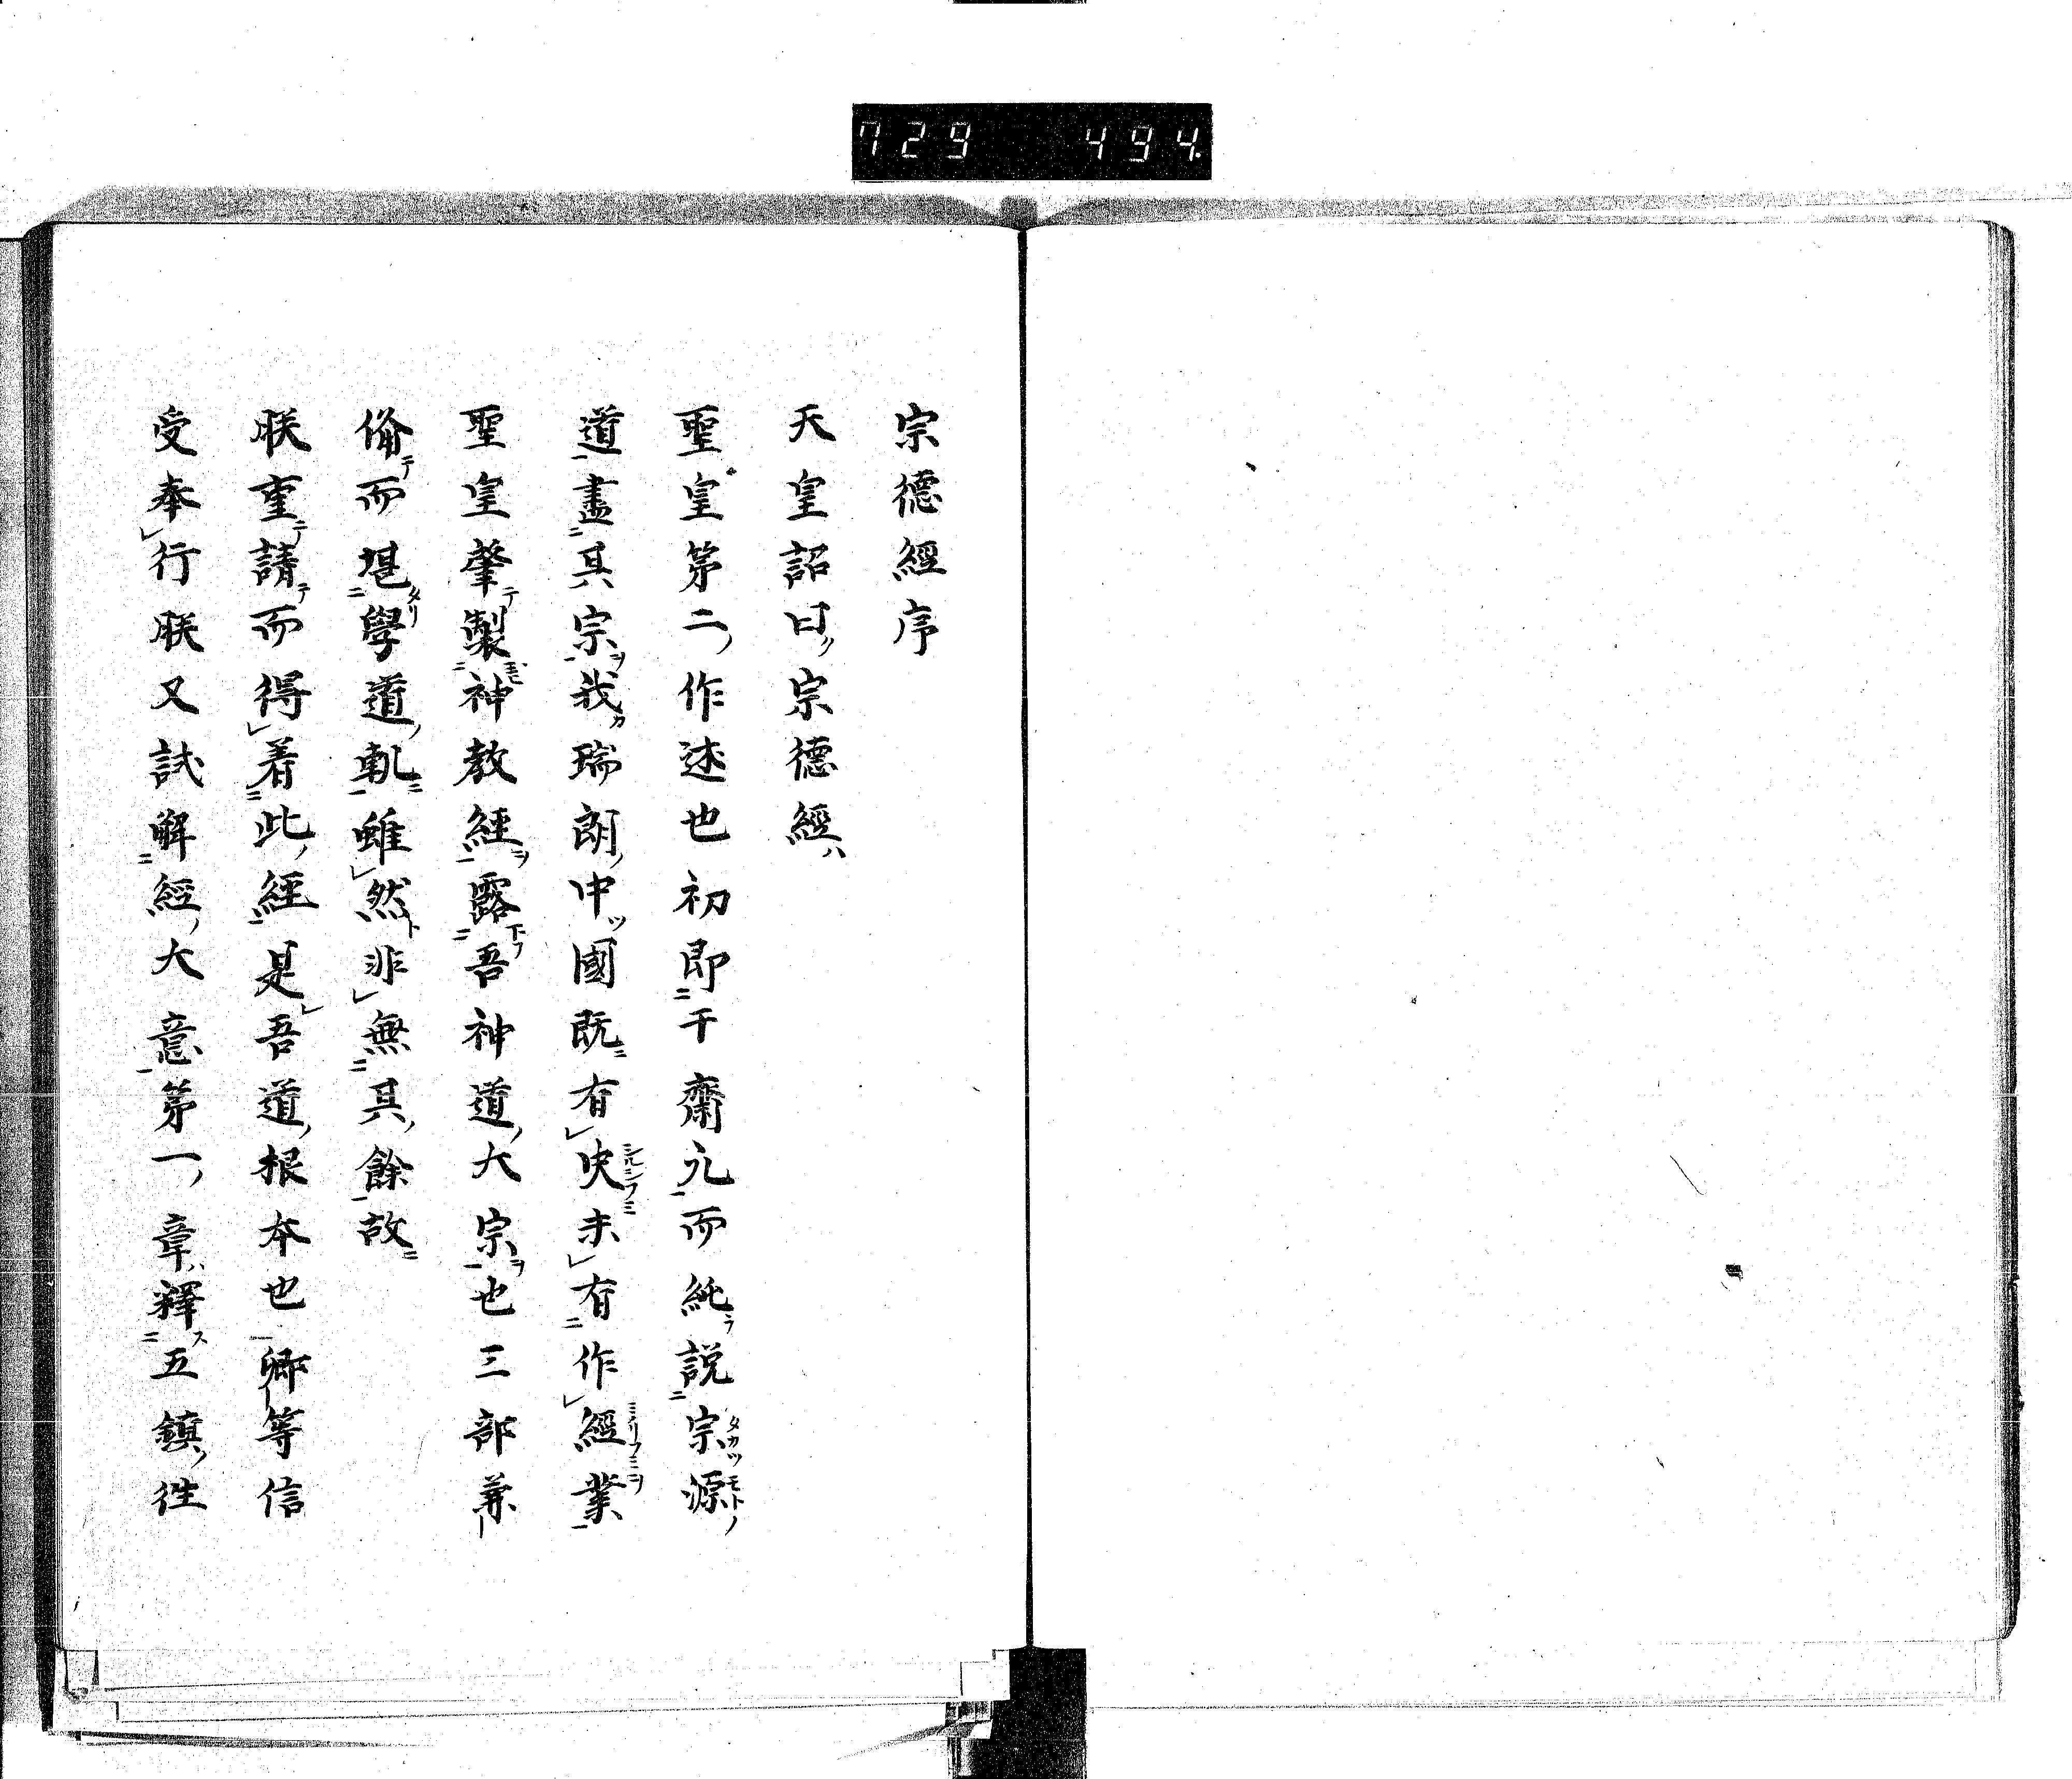 729 494.
宗德經序
天皇詔曰宗德經
聖皇第二作述也初即于齋元而純説宗源
道盡其宗我瑞朗中國既有史未有作經業
聖皇肇製神教經露吾神道大宗也三部兼
備而堪學道軌雖然非無其餘故
朕重請而得着此經是吾道根本也卿等信
受奉行朕又試解經大意第一章釋五鎮徃